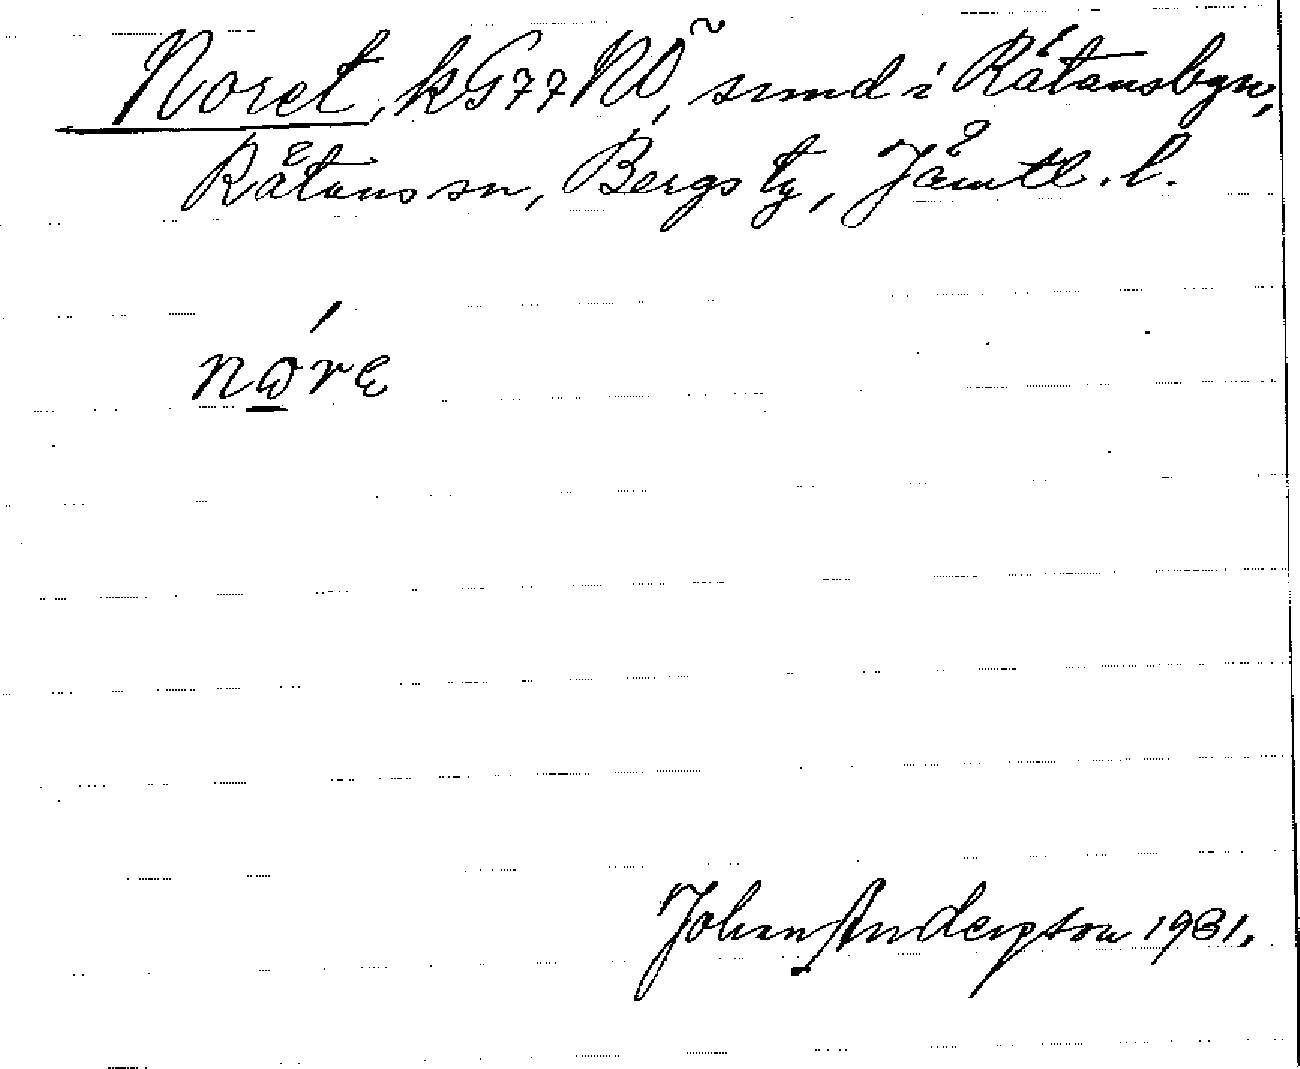 Noret, kG77NÖ, sund i Råtansbyn,
Råtans sn, Bergs tg, Jämtl. l.
nøre
Johan Andersson 1931.